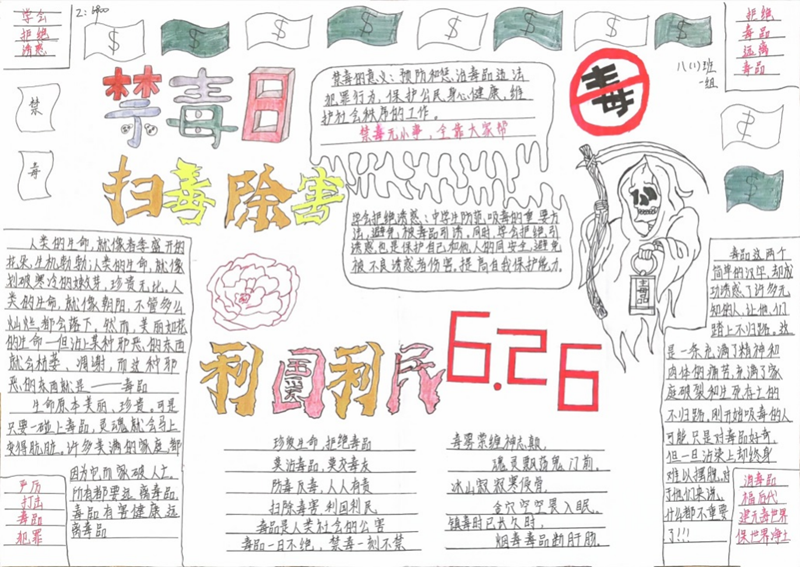 学会
拒绝
诱惑
拒绝
毒品
远离
毒品
八(1)班
一组
禁
毒
禁毒日
扫毒除害
禁毒的意义：预防和惩治毒品违法
犯罪行为，保护公民身心健康，维
护社会秩序的工作。
禁毒无小事，全靠大家帮
毒
学会拒绝诱惑：中学生防范吸毒的重要方
法，避免被毒品引诱，同时，学会拒绝引
诱惑也是保护自己和他人的同安全，避免
被不良诱惑者伤害，提高自我保护能力。
人类的生命，就像春季盛开的
花朵，生机勃勃；人类的生命，就像
划破寒冷的嫩芽，珍贵无比。人
类的生命，就像朝阳，不管多么
灿烂，都会落下，然而，美丽如花
的生命一但沾上某种邪恶的东西
就会枯萎、凋谢，而这种邪
恶的东西就是——毒品
生命原本美丽、珍贵。可是
只要一碰上毒品，灵魂就会马上
变得肮脏。许多美满的家庭，都
因为它而家破人亡。
所有都要远离毒品
毒品有害健康远
离毒品
利国利民
6.26
毒品这两个
简单的汉字，却成
功诱惑了许多无
知的人，让他们
踏上不归路，这
是一条充满了精神和
肉体的痛苦，充满了家
庭破裂和生死存亡的
不归路，刚开始吸毒的人
可能只是对毒品好奇，
但一旦沾染上却终身
难以摆脱，对
于他们来说，
什么都不重要
了!!!
珍爱生命，拒绝毒品
莫沾毒品，莫交毒友
防毒反毒，人人有责
扫除毒害 利国利民
毒品是人类社会的公害
毒品一日不绝，禁毒一刻不禁
毒雾萦绕神志颠，
魂灵飘荡鬼门前。
冰山寂寂寒夜骨，
金穴空空罢入眠。
镇毒时已长久时，
烟毒毒品断肝肠。
严厉
打击
毒品
犯罪
消毒品
福后代
建无毒世界
保世界净土